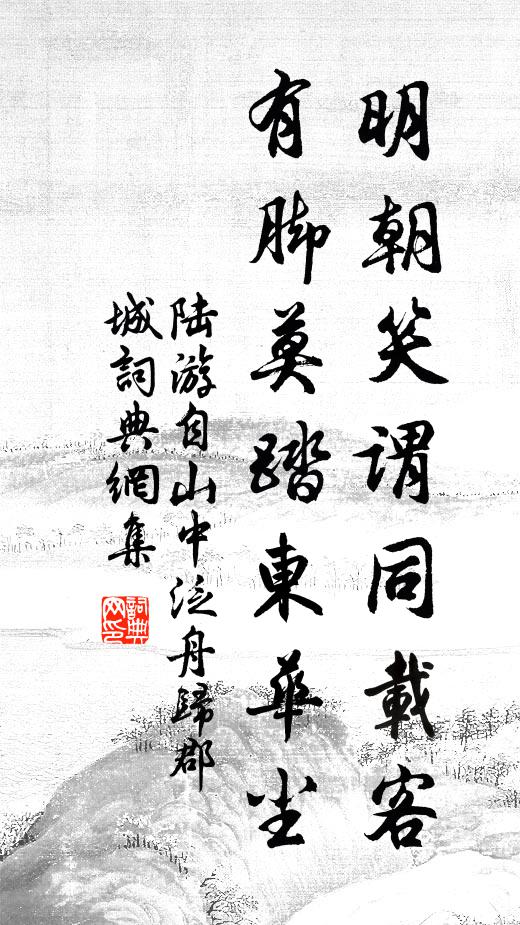 明朝笑謂同載客
有脚莫踏東華尘
陆游自山中泛舟歸郡
城詞典網集
詞典
网印